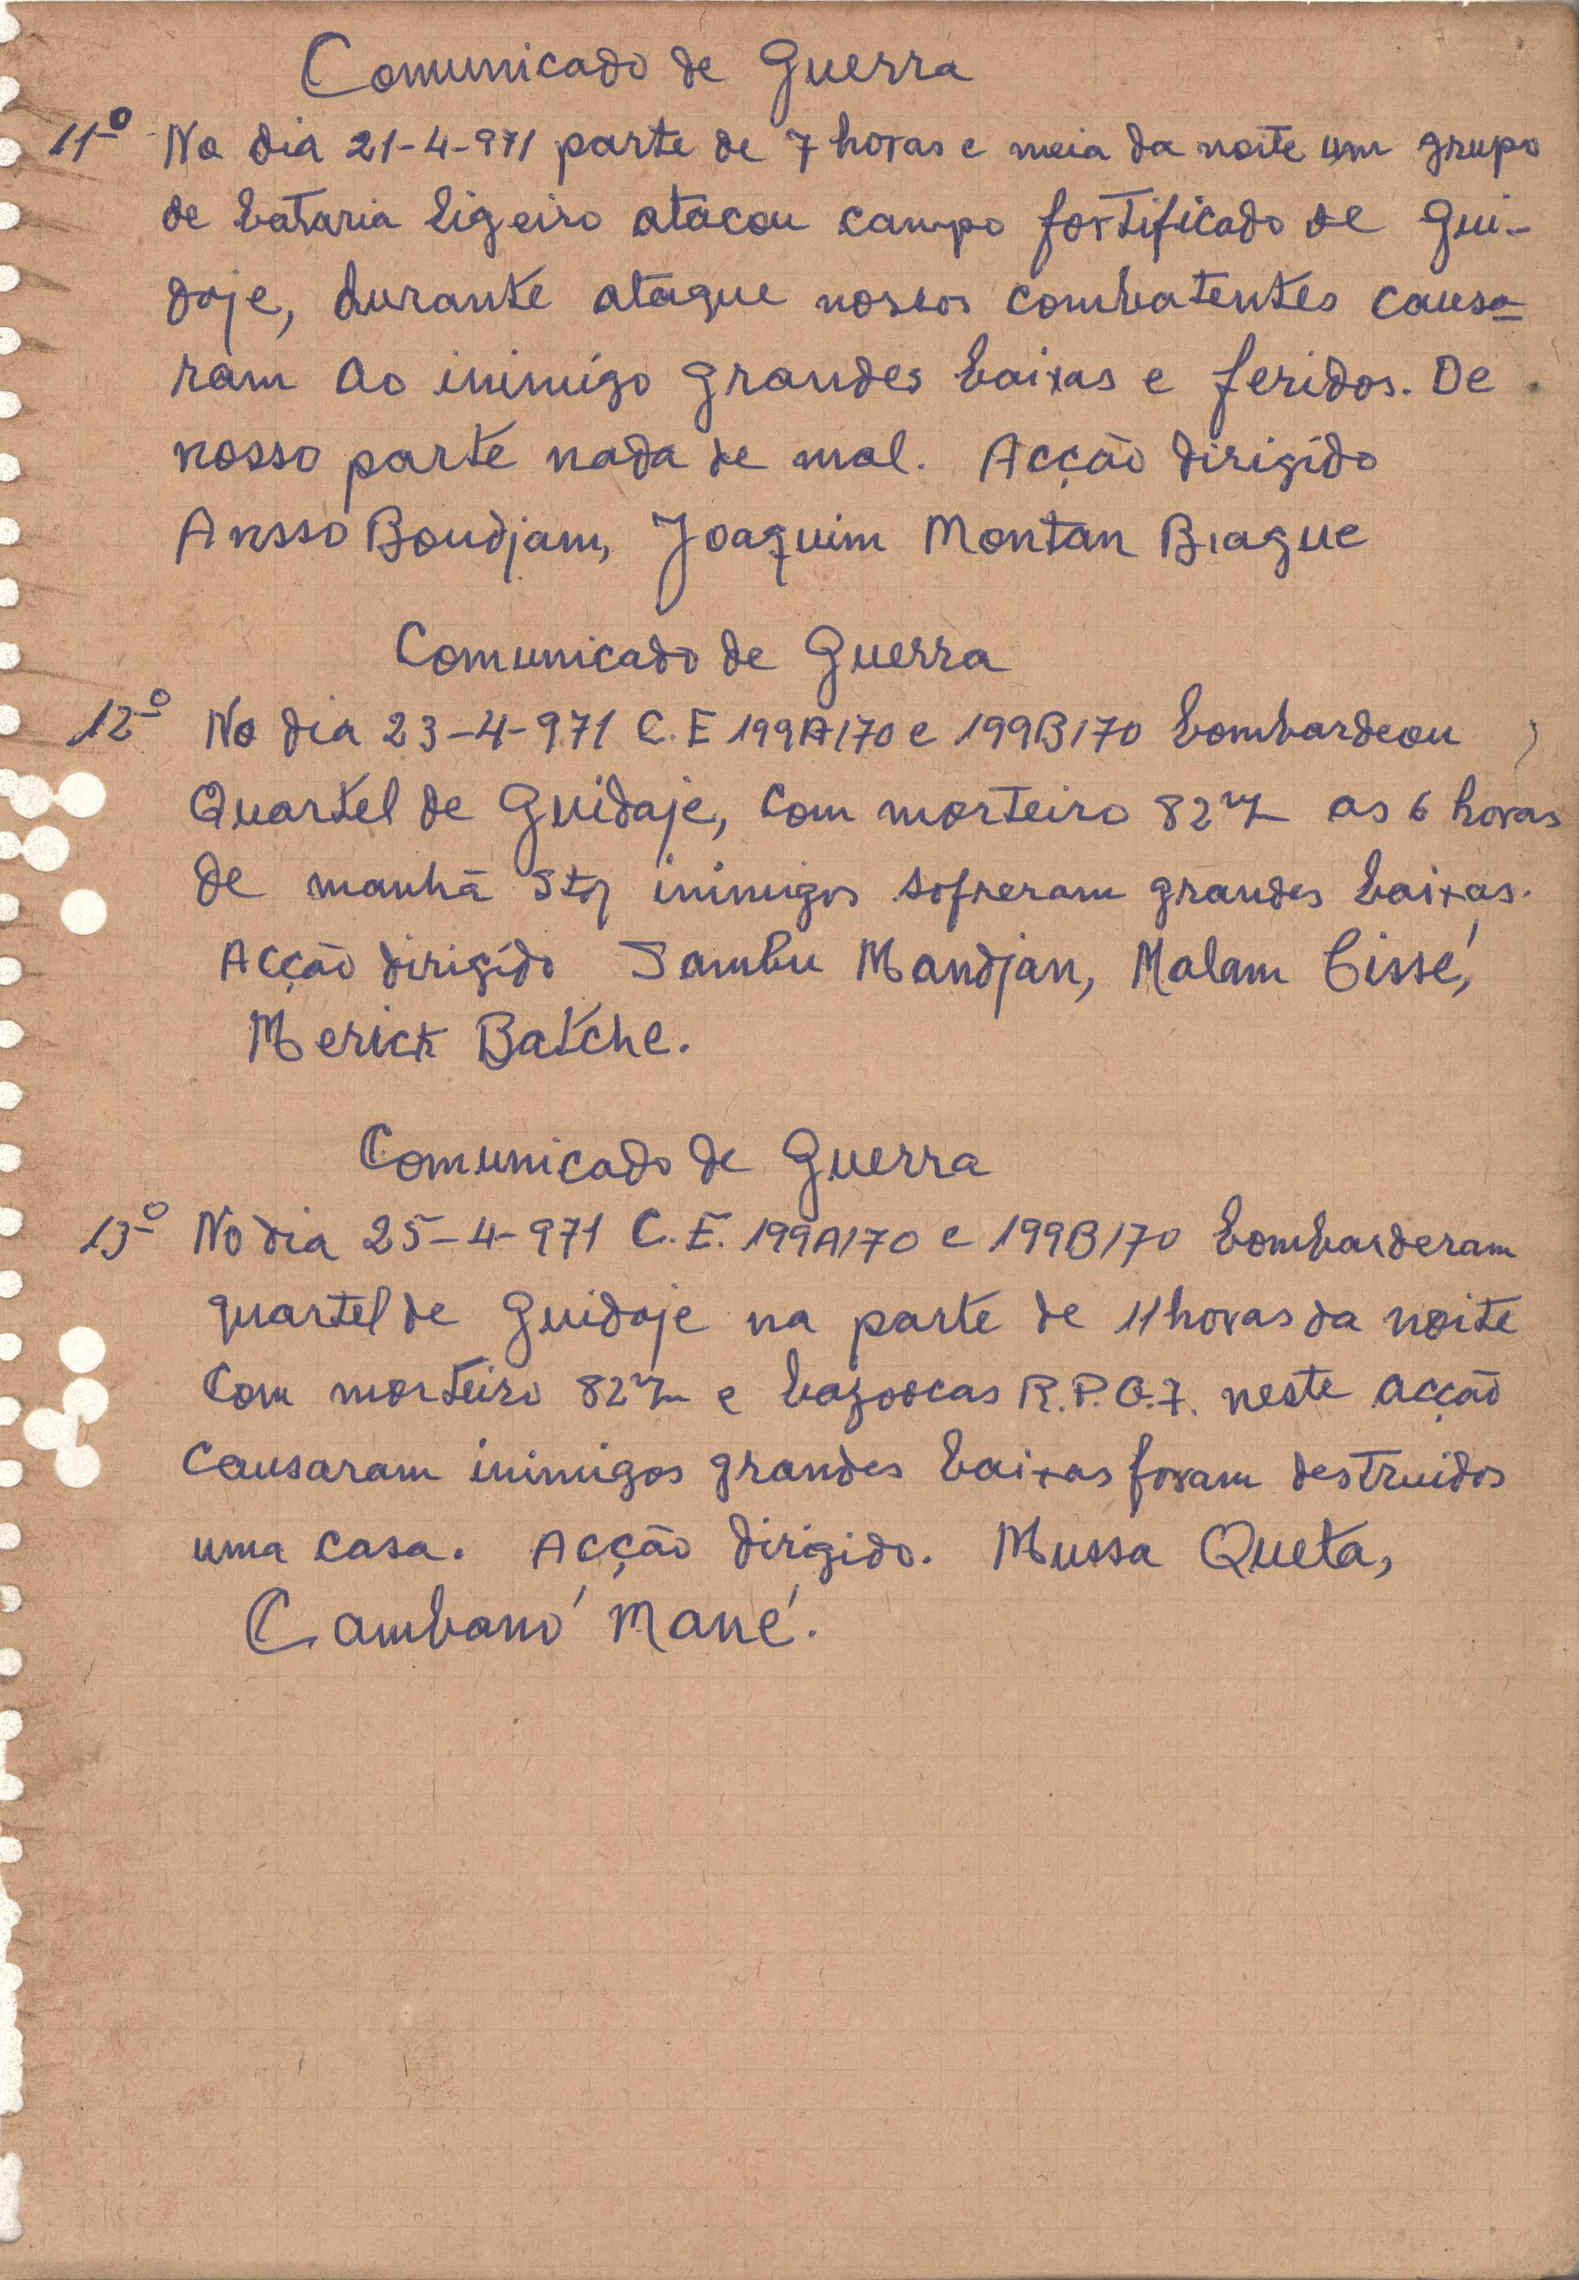 Comunicado de Guerra
11º No dia 21-4-971 parte de 7 horas e meia da noite um grupo
de bataria ligeiro atacou campo fortificado de Gui-
daje, durante ataque nossos combatentes causa
ram ao inimigo grandes baixas e feridos. De
nosso parte nada de mal. Acção dirigido
Ansso Boudjam, Joaquim Montan Biague
Comunicado de Guerra
12º No dia 23-4-971 C.E 199A170 e 199B170 bombardeou
Quartel de Guidaje, com morteiro 82 as 6 horas
de manhã Stop inimigos sofreram grandes baixas.
Acção dirigido Sambu Mandjan, Malam Cissé,
Merick Batche.
Comunicado de Guerra
13º No dia 25-4-971 C.E. 199A170 e 199B170 bombarderam
quartel de Guidaje na parte de 11 horas da noite
com morteiro 82 e bazoocas R.P.G.7. neste acção
causaram inimigos grandes baixas foram destruidos
uma casa. Acção dirigido. Mussa Queta,
Cambanó Mané.